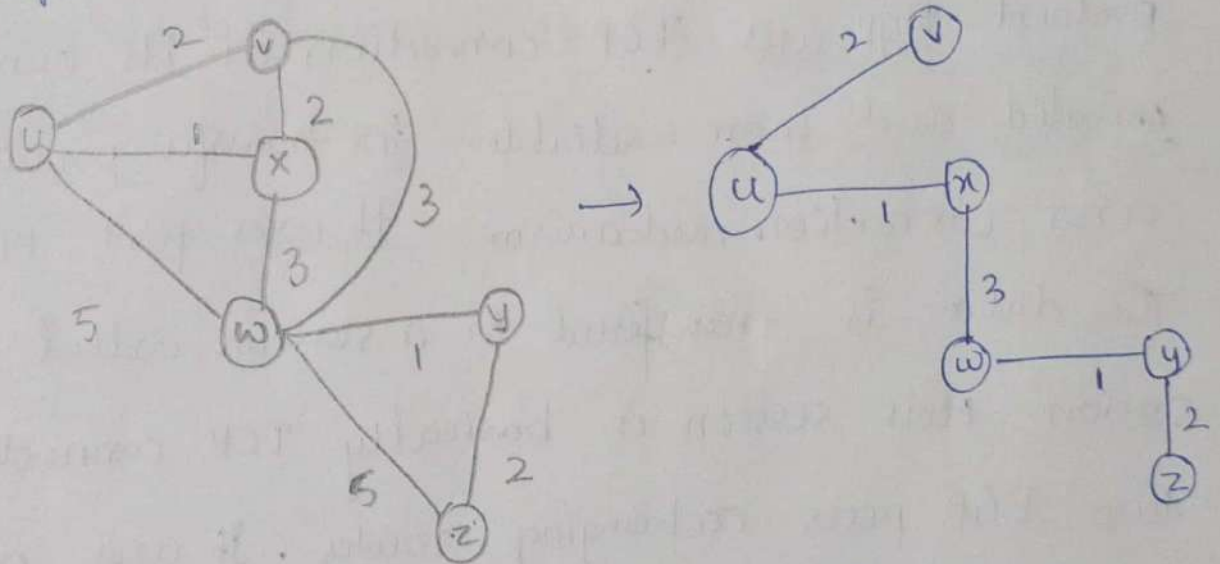 2 V
U 1 2
X
3
3
5
W 1 y
5 2
z
→
2 V
u 1 x
3
w 1 y
2
z